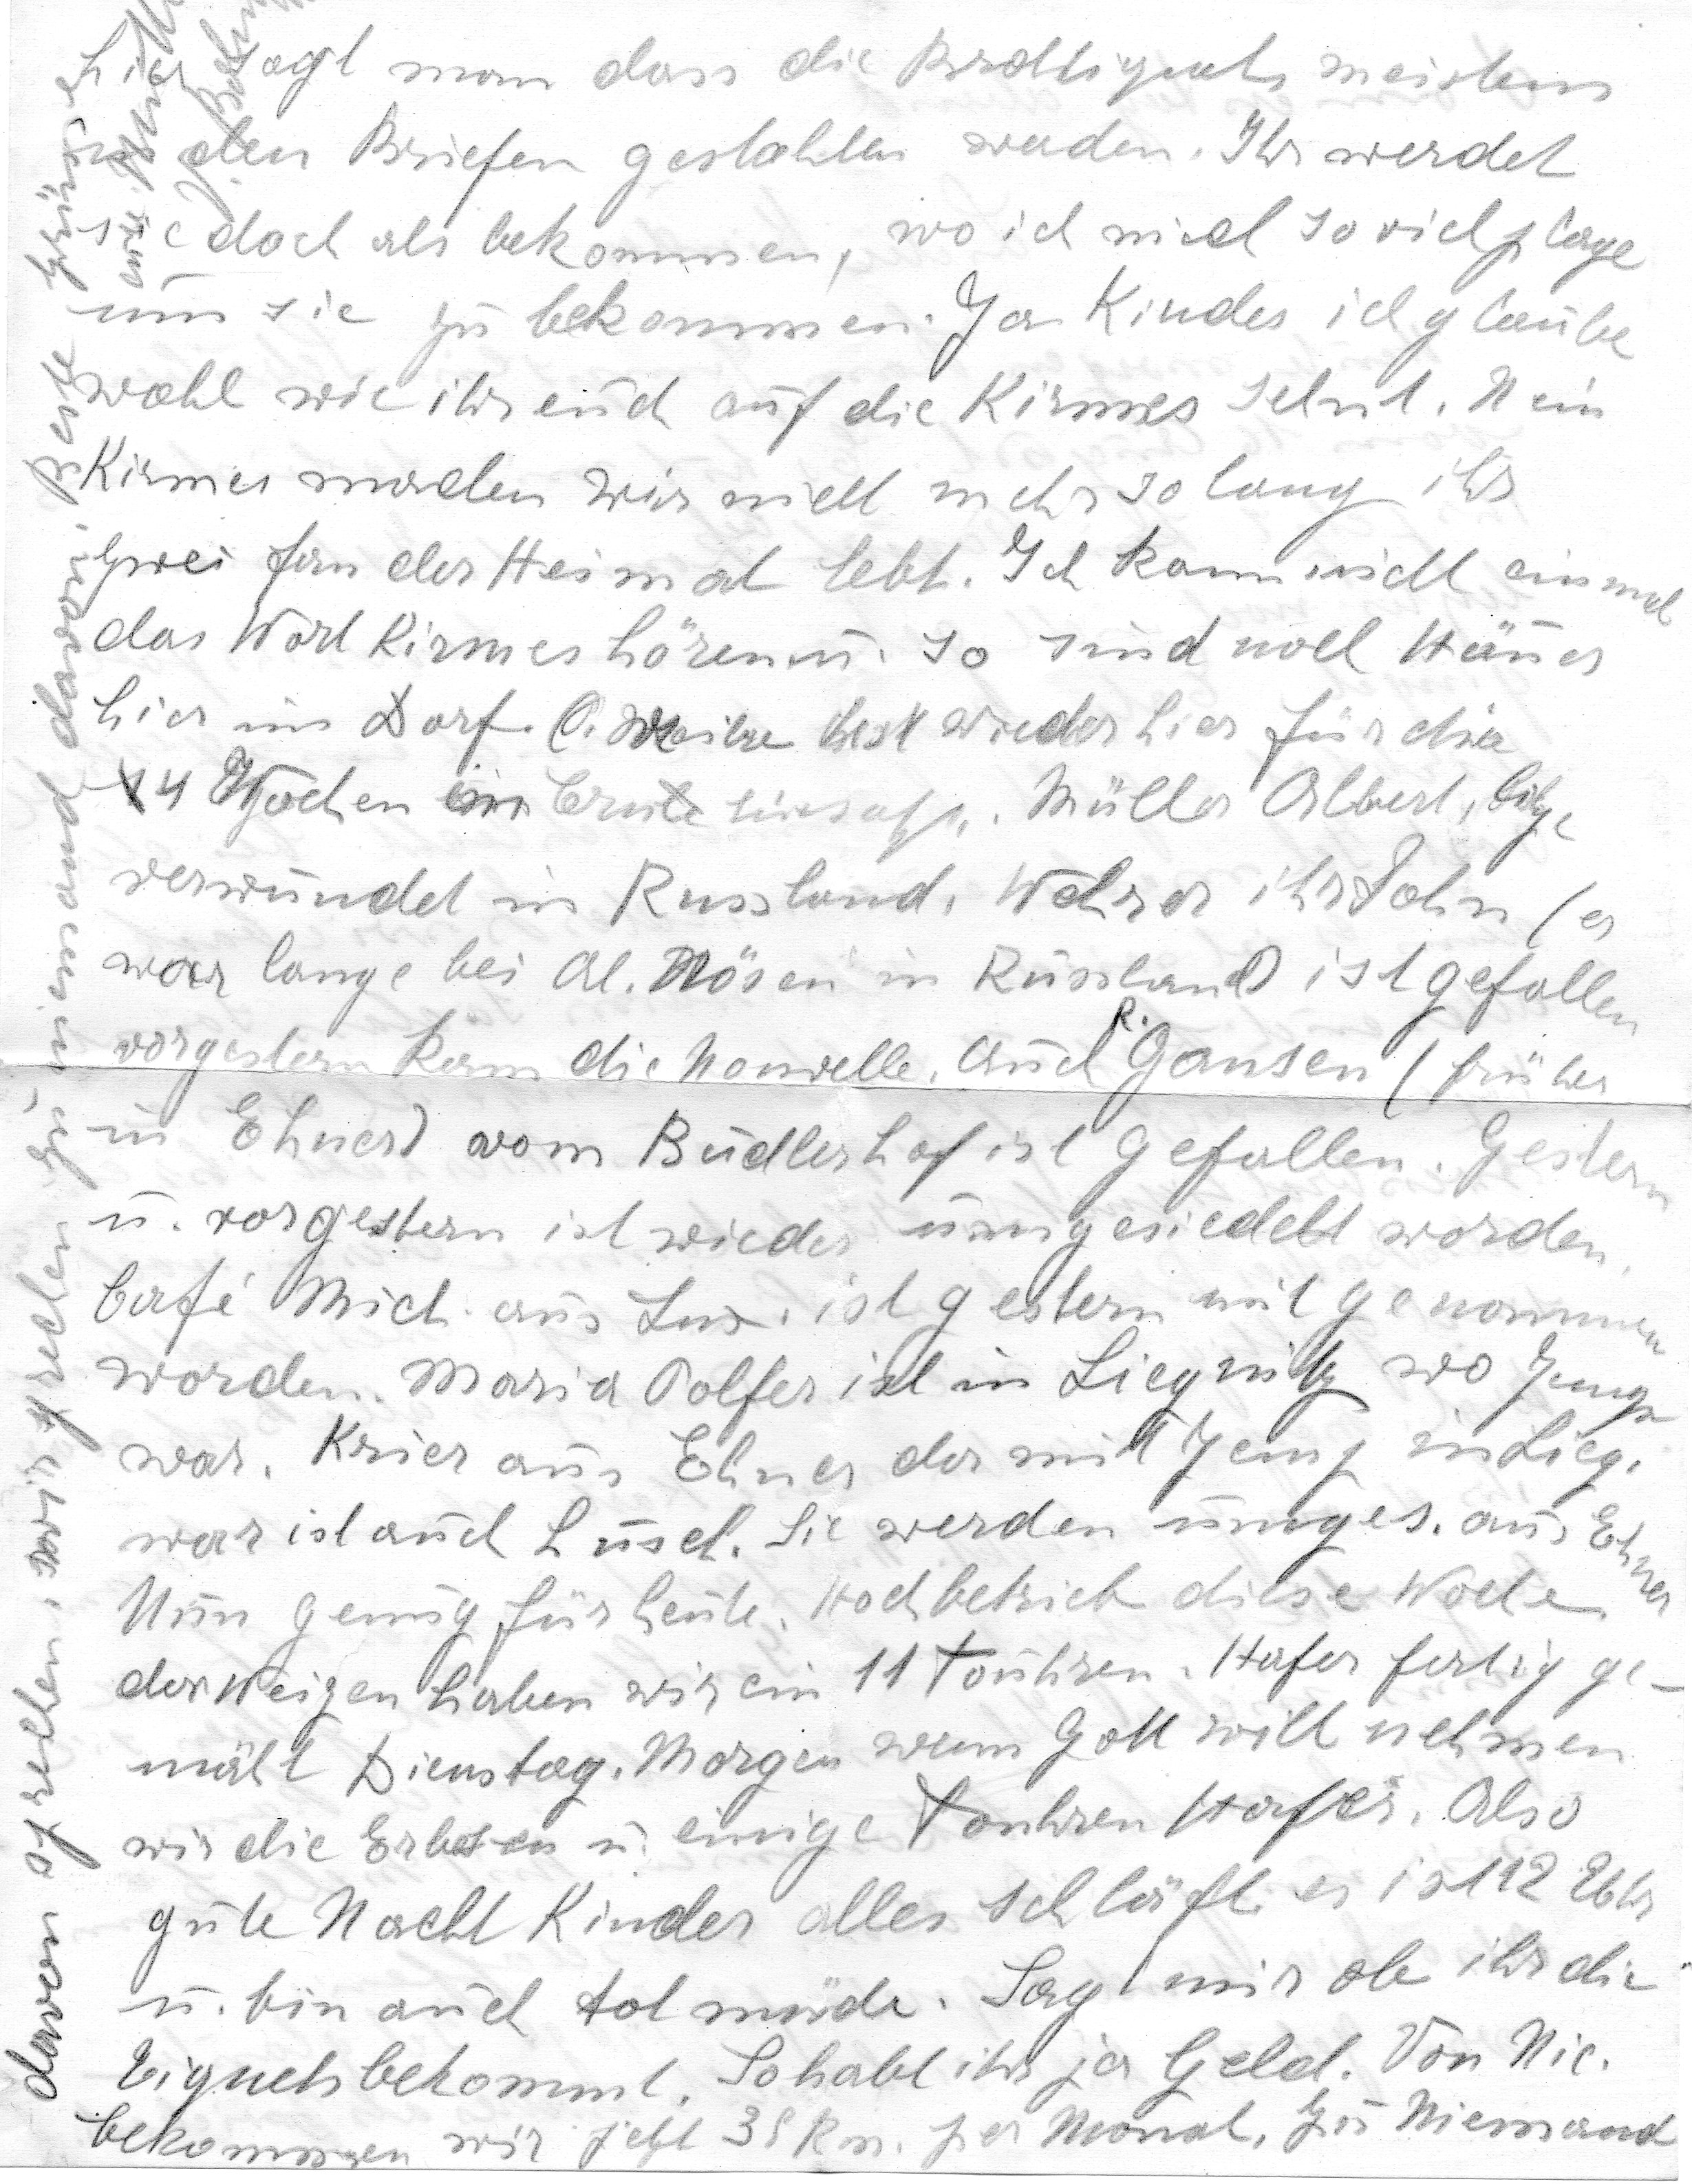 hier sagt man dass die Brottiquets meistens
in den Briefen gestohlen werden. Ihr werdet
sie doch als bekommen, wo ich mich so viel plage
um sie zu bekommen. Ja Kinder ich glaube
wohl wie ihr euch auf die Kirmes sehnt. Nein
Kirmes machen wir nicht mehr so lang ihr
zwei fern der Heimat lebt. Ich kann nicht einmal
das Wort Kirmes hören u. so sind noch Häuser
hier im Dorf. wieder hier für die
4 Wochen im Ernteeinsatz. Müller Albert,
verwundet in Russland. Wehrer ihr Sohn (er
war lange bei Al. Mösen in Russland) ist gefallen
vorgestern kam die Nouvelle. Auch R. Gansen (früher
in Ehner) vom Budlerhof ist gefallen. Gestern
u. vorgestern ist wieder umgesiedelt worden.
Café Mich. aus Lux. ist gestern mitgenommen
worden. Maria Polfer ist in Liegnitz wo Jemp
war. Krier aus Ehner der mit Jemp in Lieg.
war ist auch husch. Sie werden umges. aus Ehner
Nun genug für heute. Hochbetrieb diese Woche
der Weizen haben wir ein 11 Touhren. Hafer fertig ge-
mäht Dienstag. Morgen wenn Gott will nehmen
wir die Erbsen u. einige Touhren Hafer. Also
gute Nacht Kinder alles schläft es ist 12 Uhr
u. bin auch tot müde. Sagt mir ob ihr die
Tiquets bekommt. So habt ihr ja Geld. Von Nic.
bekommen wir jetzt 35 Rm. per Monat. Zu Niemand
davon sprechen, wir sprechen zu niemand davon. Beste Grüsse